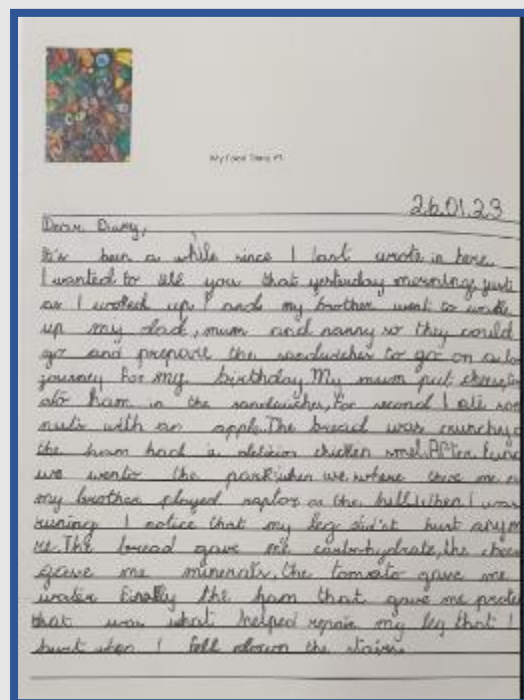 My Food Diary
26.01.23
Dear Diary,
It's been a while since I last wrote in here.
I wanted to tell you that yesterday morning, just
as I waked up I and my brother went to wake
up my dad, mum and nanny so they could
go and prepare the sandwiches to go on a
journey for my birthday. My mum put cheese,
ato ham in the sandwiches, for second I ate
nuts with an apple. The bread was crunchy
the ham had a chicken smel. After
we wento the park when we where me
my brother played raptor on the hill. When I was
runing I notice that my leg did'nt hurt anym
re. The bread gave me the
gave me minerals, the tomato gave me
water finally the ham that gave me
that was what helped repair my leg that I
hurt when I fell down the stairs.